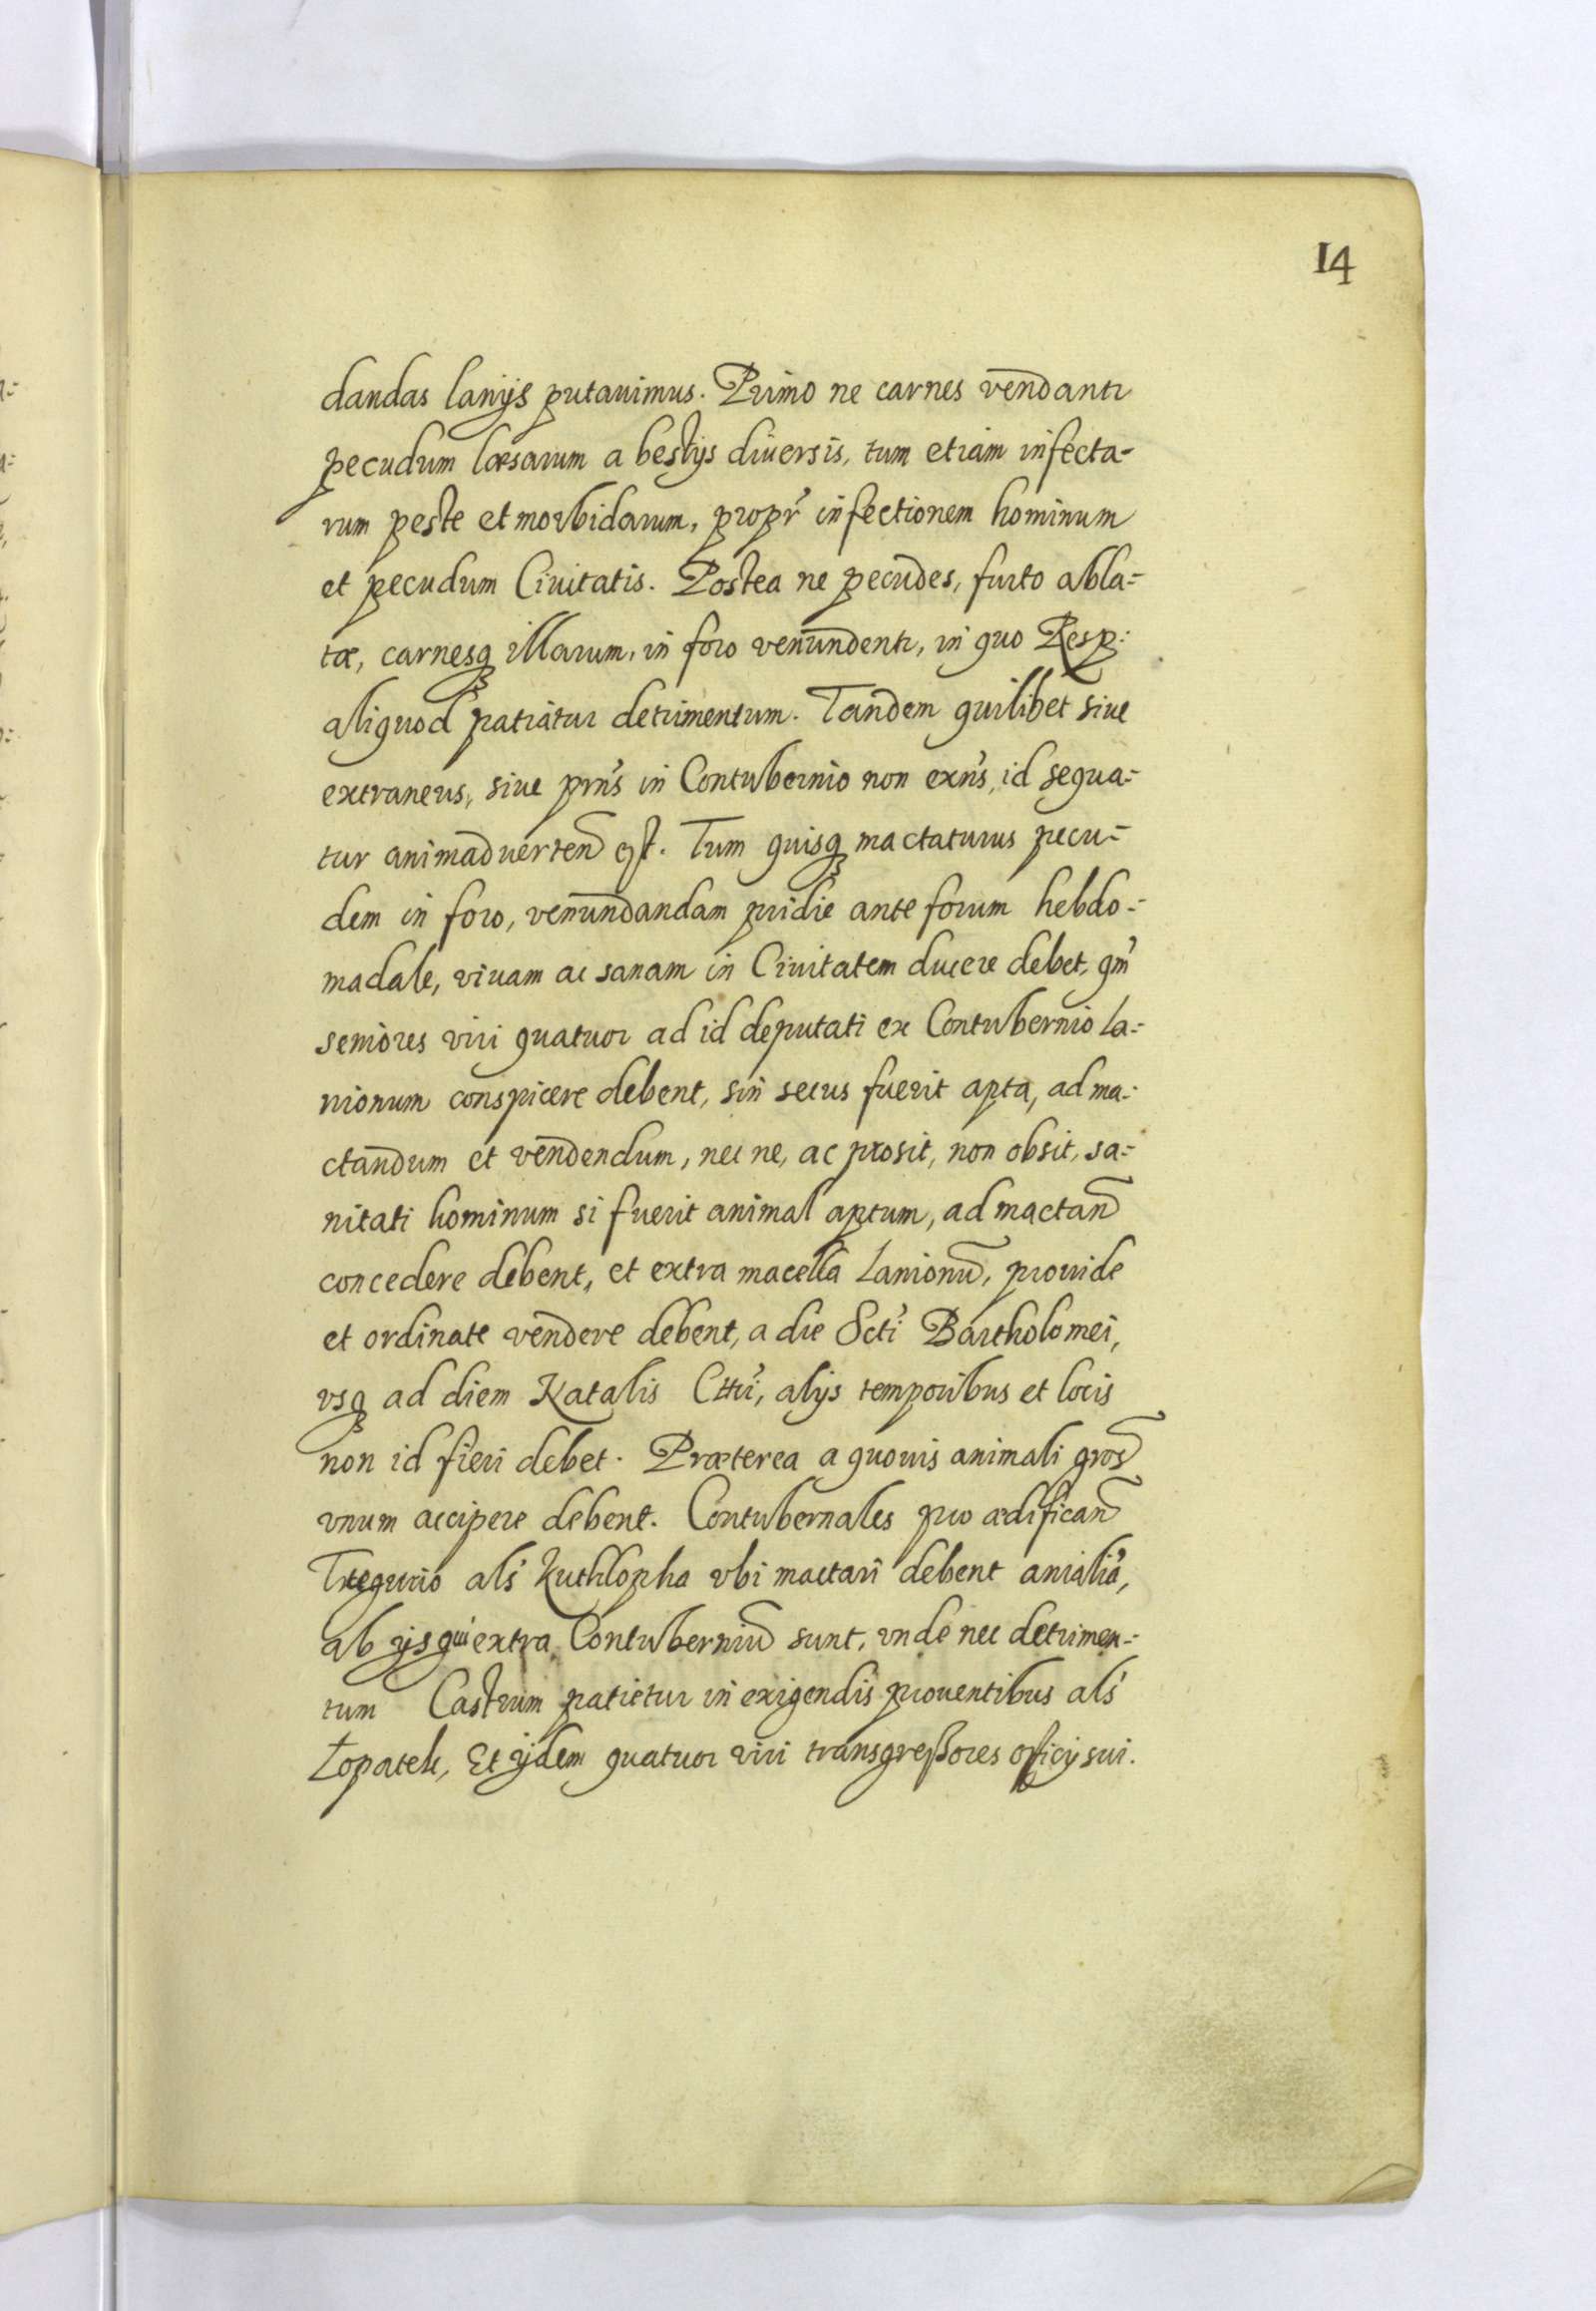 14
dandas lanijs putauimus. Primo ne carnes vendantr
pecudum læsarum a bestijs diuersis, tum etiam infecta-
rum peste et morbidarum, proptr infectionem hominum
et pecudum Ciuitatis. Postea ne pecudes, furto abla-
tæ, carnesq illarum, in foro venundentr, in quo Resp:
aliquod patiatur detrimentum. Tandem quilibet siue
extraneus, siue prn's in Contubernio non exn's, id sequa-
tur animaduerten est. Tum quisq mactaturus pecu-
dem in foro, venundandam pridie ante forum hebdo-
madale, viuam ac sanam in Ciuitatem ducere debet, qm'
seniores viri quatuor ad id deputati ex Contubernio La-
nionum conspicere debent, sin secus fuerit apta, ad ma-
ctandum et vendendum, nec ne, ac prosit, non obsit, sa-
nitati hominum si fuerit animal aptum, ad mactan
concedere debent, et extra macella Lanionū, prouide
et ordinate vendere debent, a die Scti' Bartholomei,
vsq ad diem Natalis Cttri', alijs temporibus et locis
non id fieri debet. Præterea a quouis animali gros
vnum accipere debent. Contubernales pro ædifican
Tugurio als' Kuthlopha vbi mactari debent anialia',
ab ijs qui extra Contuberniū sunt, vnde nec detrimen-
tum Castrum patietur in exigendis prouentibus als'
Łopatek, Et ijdem quatuor viri transgreßores officij sui.